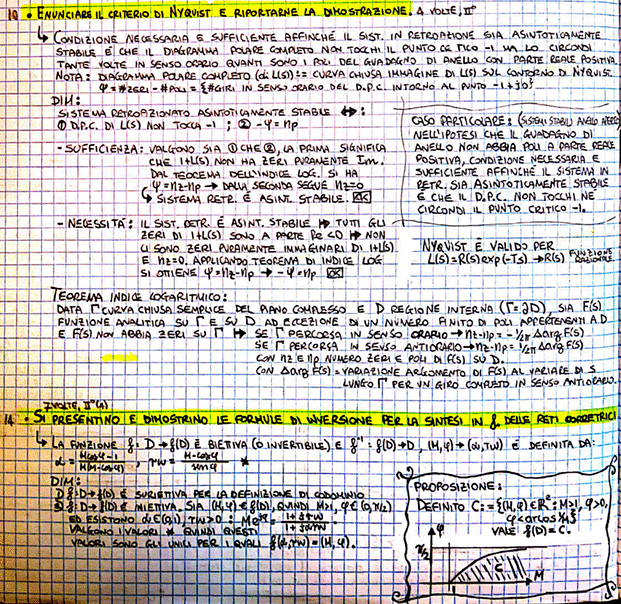 10 • ENUNCIARE IL CRITERIO DI NYQUIST E RIPORTARNE LA DIMOSTRAZIONE. 4 VOLTE, II°
↳ CONDIZIONE NECESSARIA E SUFFICIENTE AFFINCHÉ IL SIST. IN RETROAZIONE SIA ASINTOTICAMENTE
STABILE È CHE IL DIAGRAMMA POLARE COMPLETO NON TOCCHI IL PUNTO CRITICO -1 MA LO CIRCONDI
TANTE VOLTE IN SENSO ORARIO QUANTI SONO I POLI DEL GUADAGNO DI ANELLO CON PARTE REALE POSITIVA.
NOTA: DIAGRAMMA POLARE COMPLETO (di L(S)) := CURVA CHIUSA IMMAGINE DI L(S) SUL CONTORNO DI NYQUIST.
φ = #ZERI - #POLI = {#GIRI IN SENSO ORARIO DEL D.P.C. INTORNO AL PUNTO -1+j0}
DIM:
SISTEMA RETROAZIONATO ASINTOTICAMENTE STABILE ⇔:
① D.P.C. DI L(S) NON TOCCA -1 ; ② -φ = np
- SUFFICIENZA: VALGONO SIA ① CHE ②, LA PRIMA SIGNIFICA
CHE 1+L(S) NON HA ZERI PURAMENTE Im.
DAL TEOREMA DELL'INDICE LOG. SI HA
φ = nz-np → DALLA SECONDA SEGUE nz=0
↳ SISTEMA RETR. È ASINT. STABILE. OK
- NECESSITÀ: IL SIST. RETR. È ASINT. STABILE ⇒ TUTTI GLI
ZERI DI 1+L(S) SONO A PARTE Re<0 ⇒ NON
CI SONO ZERI PURAMENTE IMMAGINARI DI 1+L(S)
E nz=0. APPLICANDO TEOREMA DI INDICE LOG
SI OTTIENE φ = nz-np → -φ = np OK
CASO PARTICOLARE: (SISTEMI STABILI ANELLO APERTO)
NELL'IPOTESI CHE IL GUADAGNO DI
ANELLO NON ABBIA POLI A PARTE REALE
POSITIVA, CONDIZIONE NECESSARIA E
SUFFICIENTE AFFINCHÉ IL SISTEMA IN
RETR. SIA ASINTOTICAMENTE STABILE
È CHE IL D.P.C. NON TOCCHI NE
CIRCONDI IL PUNTO CRITICO -1.
NYQUIST È VALIDO PER
L(S)=R(S)exp(-TS) → R(S) FUNZIONE RAZIONALE.
TEOREMA INDICE LOGARITMICO:
DATA Γ CURVA CHIUSA SEMPLICE DEL PIANO COMPLESSO E D REGIONE INTERNA (Γ=∂D), SIA F(S)
FUNZIONE ANALITICA SU Γ E SU D AD ECCEZIONE DI UN NUMERO FINITO DI POLI APPARTENENTI A D
E F(S) NON ABBIA ZERI SU Γ ⇒ SE Γ PERCORSA IN SENSO ORARIO → nz-np = -1/2π Δarg F(S)
SE Γ PERCORSA IN SENSO ANTIORARIO → nz-np = 1/2π Δarg F(S)
CON nz E np NUMERO ZERI E POLI DI F(S) SU D.
CON Δarg F(S) = VARIAZIONE ARGOMENTO DI F(S) AL VARIARE DI S
LUNGO Γ PER UN GIRO COMPLETO IN SENSO ANTIORARIO.
14 • SI PRESENTINO E DIMOSTRINO LE FORMULE DI INVERSIONE PER LA SINTESI IN f. DELLE RETI CORRETTRICI
↳ LA FUNZIONE f: D→f(D) È BIETIVA (O INVERTIBILE) E f⁻¹: f(D)→D, (M,φ)→(α,τω) È DEFINITA DA:
α = Mcosφ-1 / M(M-cosφ) , τω = M-cosφ / sinφ *
DIM:
① f: D→f(D) È SURIETIVA PER LA DEFINIZIONE DI CODOMINIO
② f: D→f(D) È INIETIVA. SIA (M,φ)∈f(D), QUINDI M>1, φ∈(0,π/2)
ED ESISTONO α∈(0,1), τω>0 : Me^jφ = 1+jτω / 1+jατω
VALGONO I VALORI * QUINDI QUESTI
VALORI SONO GLI UNICI PER I QUALI f(α,τω) = (M,φ).
PROPOSIZIONE:
DEFINITO C := {(M,φ)∈R²: M>1, φ>0,
φ<arcos 1/M}
VALE f(D)=C.
φ
π/2
C
1
M